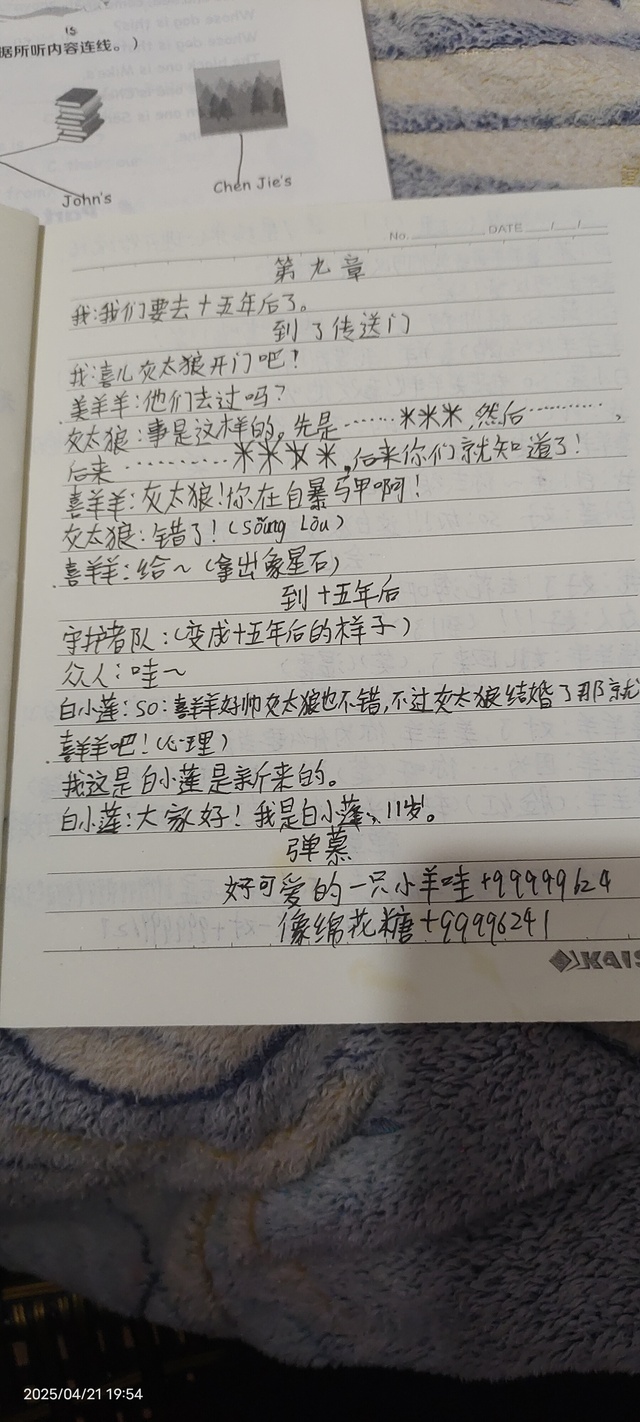 15
据所听内容连线。)
Whose dog is this?
John's
Chen Jie's
No.
DATE / /
第九章
我:我们要去十五年后了。
到了传送门
我:喜儿灰太狼开门吧!
美羊羊:他们去过吗?
灰太狼:事是这样的,先是……米米米,然后………,
后来………米米米米,后来你们就知道了!
喜羊羊:灰太狼!你在自暴马甲啊!
灰太狼:错了!(sǒng Lou)
喜羊羊:给~(拿出象星石)
到十五年后
守护者队:(变成十五年后的样子)
众人:哇~
白小莲:so:喜羊羊好帅灰太狼也不错,不过灰太狼结婚了那就
喜羊羊吧!(心理)
我这是白小莲是新来的。
白小莲:大家好!我是白小莲、11岁。
弹慕
好可爱的一只小羊哇+99999624
像绵花糖+99996241
KAIS
2025/04/21 19:54